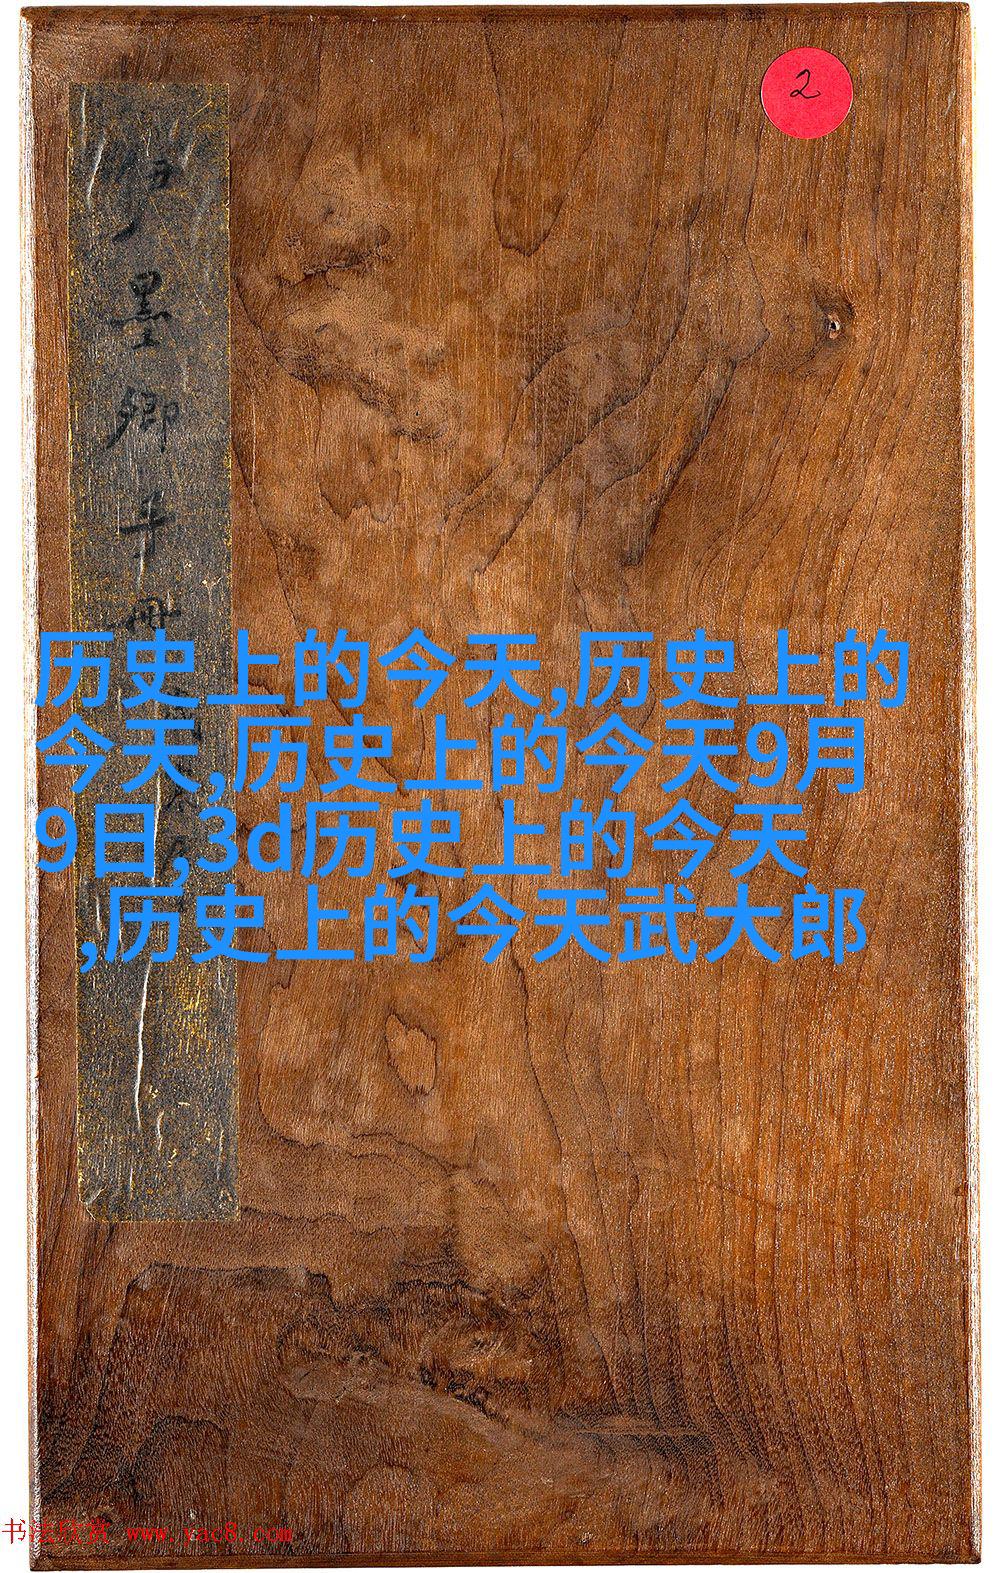 2
墨卿手冊
历史上的今天,历史上的
今天,历史上的今天9月
9日,3d历史上的今天
,历史上的今天武大郎
书法欣赏 www.yac8.com